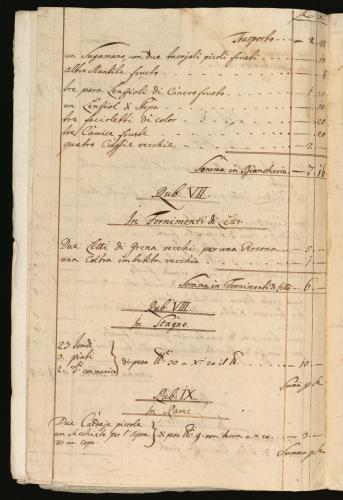 Trasporto - 2 - 10
un Sugamano, con due tavajoli picoli frusti - 11
altro Mantile frusto - 8
tre para Lenzioli di Cinere frusto - 1 - 30
un Lenziol di Stopa - 10
tre facioletti di color - 20
tre Camise fruste - 20
quatro Cuffie vecchie - 2
Somma in Biancheria - 7 - 16
Rub. VII
In Fornimenti di Letto
Due Letti di vecchi per una Persona - 5
una Coltra imbotita vecchia - 1
Somma in Fornimenti di Letto - 6
Rub. VIII
In Stagno
23 tondi
3 piati
2 con manico
di peso 30 a 20 il - 10
Rub. IX
In Rame
Due picole
un Secchieto per l'Aqua
ed un Copo
peso con a 20 - 3